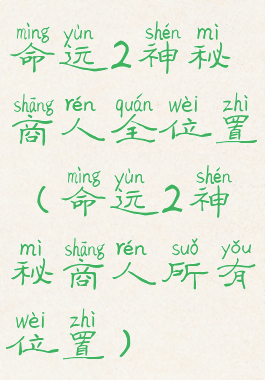 mìng yùn shén mì
命运2神秘
shāng rén quán wèi zhì
商人全位置
mìng yùn shén
（命运2神
mì shāng rén suǒ yǒu
秘商人所有
wèi zhì
位置）